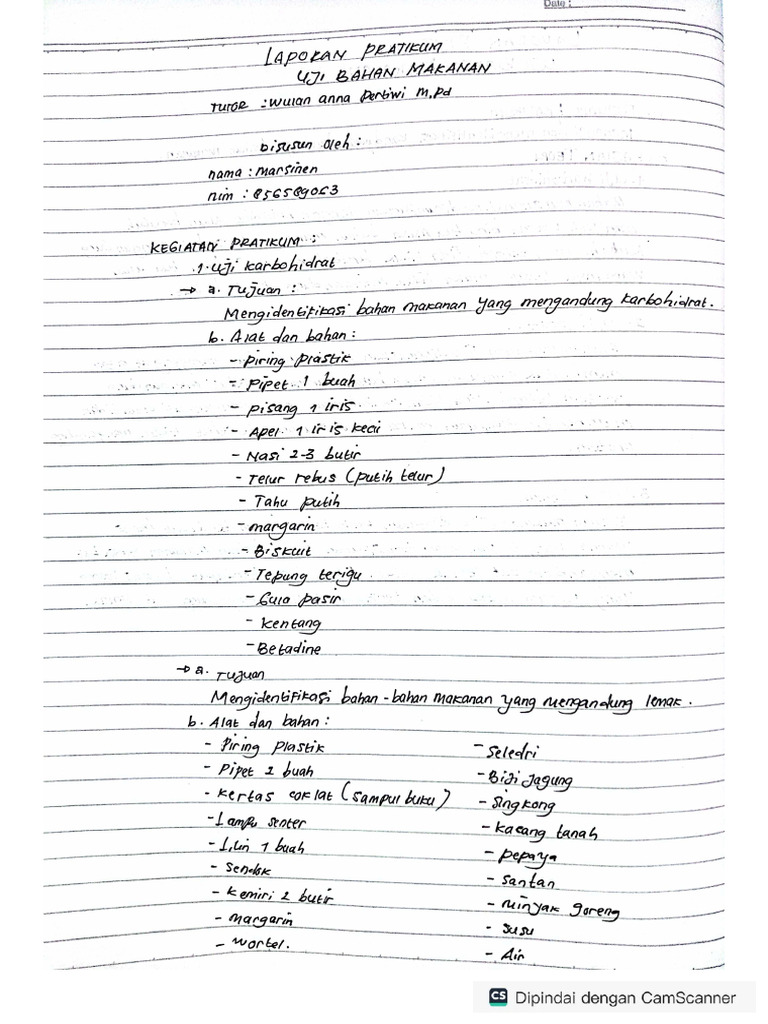 Date :
LAPORAN PRATIKUM
UJI BAHAN MAKANAN
TUTOR : Wulan anna Pertiwi M.Pd
Disusun oleh :
nama : Marsinen
nim : 856589063
KEGIATAN PRATIKUM :
1. Uji Karbohidrat
→ a. Tujuan :
Mengidentifikasi bahan makanan yang mengandung karbohidrat.
b. Alat dan bahan :
- Piring plastik
- Pipet 1 buah
- Pisang 1 iris
- Apel 1 iris kecil
- Nasi 2-3 butir
- Telur rebus (putih telur)
- Tahu putih
- margarin
- Biskuit
- Tepung terigu
- Gula pasir
- Kentang
- Betadine
→ a. Tujuan
Mengidentifikasi bahan-bahan makanan yang mengandung lemak.
b. Alat dan bahan :
- Piring Plastik
- Pipet 2 buah
- Kertas coklat (sampul buku)
- Lampu senter
- Lilin 1 buah
- Sendok
- Kemiri 2 butir
- margarin
- Wortel.
- Seledri
- Biji Jagung
- Singkong
- Kacang tanah
- pepaya
- Santan
- Minyak goreng
- Susu
- Air
CS Dipindai dengan CamScanner